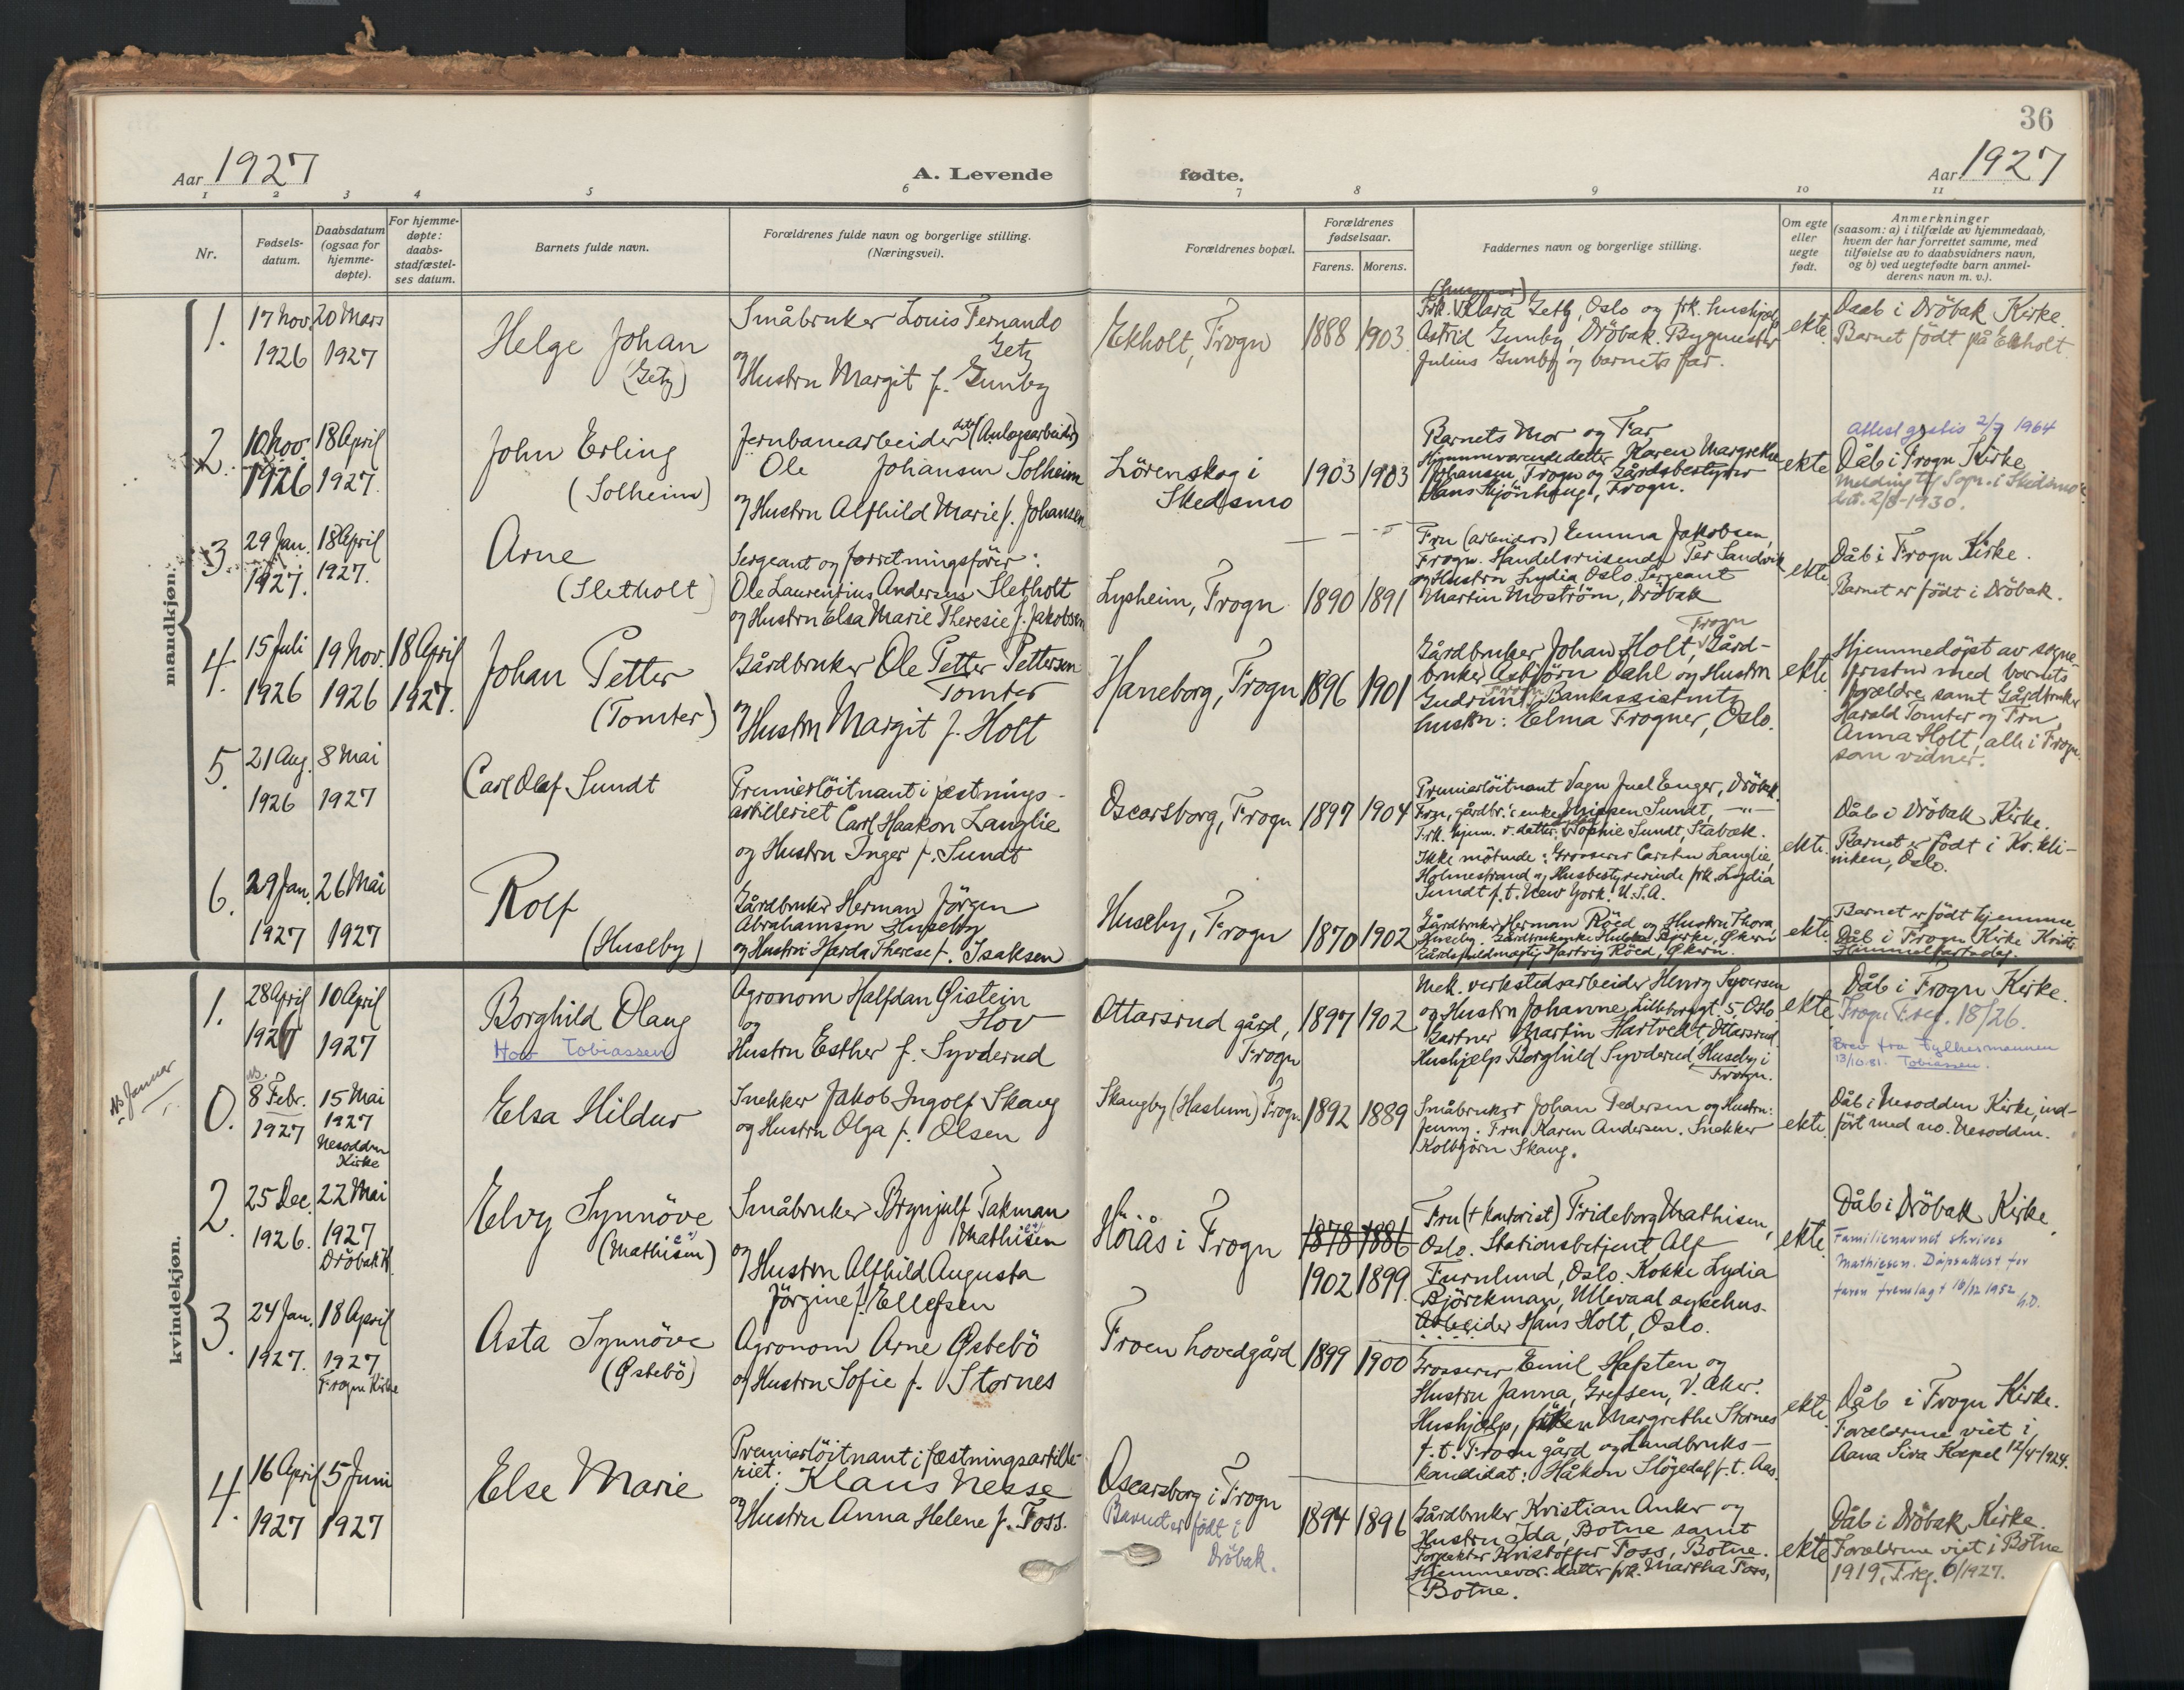 36
Aar 1927
A. Levende
fødte.
Aar 1927
1 2 3 4 5 6 7 8 9 10 11
Nr.
Fødsels-
datum.
Daabsdatum
(ogsaa for
hjemme-
døpte).
For hjemme-
døpte:
daabs-
stadfæstel-
ses datum.
Barnets fulde navn.
Forældrenes fulde navn og borgerlige stilling.
(Næringsvei).
Forældrenes bopæl.
Forældrenes
fødselsaar.
Farens. Morens.
Faddernes navn og borgerlige stilling.
Om egte
eller
uegte
født.
Anmerkninger
(saasom: a) i tilfælde av hjemmedaab,
hvem der har forrettet samme, med
tilføielse av to daabsvidners navn,
og b) ved uegtefødte barn anmel-
derens navn m. v.).
mandkjøn.
1.
17 Nov.
1926
20 Mars
1927
Helge Johan
(Getz)
Småbruker Louis Fernando
Getz
og Hustru Margit f. Gunby
Ekholt, Frogn
1888 1903
Frk. Klara Getz, Oslo og frk. hushjelp
Astrid Gunby, Dröbak. Bygmester
Julius Gunby og barnets far.
ekte.
Daab i Dröbak Kirke.
Barnet födt på Ekholt.
2.
10 Nov.
1926
18 April
1927.
John Erling
(Solheim)
Jernbanearbeider (Anlegsarbeider)
Ole Johansen Solheim
og Hustru Alfhild Marie f. Johansen
Lörenskog i
Skedsmo
1903 1903
Barnets Mor og Far
Hjemmeværende datter Karen Margrethe
Johansen, Frogn og Gårdsbestyrer
Hans Kjönhaug, Frogn.
ekte
attest gratis 2/7 1964
Dåb i Frogn Kirke
Melding til Sogn. i Skedsmo
dat. 2/8-1930.
3.
29 Jan.
1927.
18 April
1927.
Arne
(Sletholt)
Sergeant og forretningsförer:
Ole Laurentius Andersen Sletholt
og Hustru Elsa Marie Theresie f. Jakobsen
Lysheim, Frogn
1890 1891
Fru (arbeiders) Emma Jakobsen,
Frogn. Handelsreisende Per Sandvik
og Hustru Lydia, Oslo. Sergeant
Martin Moström, Dröbak
ekte
Dåb i Frogn Kirke.
Barnet er födt i Dröbak.
4.
15 Juli
1926
19 Nov.
1926
18 April
1927.
Johan Petter
(Tomter)
Gårdbruker Ole Petter Pettersen
Tomter
og Hustru Margit f. Holt
Haneborg, Frogn
1896 1901
Frogn
Gårdbruker Johan Holt, Gård-
bruker Asbjörn Dahl og Hustru
Gudrun, Frogn. Bankassistents
hustru: Elma Frogner, Oslo.
ekte
Hjemmedöpt av sogne-
presten med barnets
forældre samt Gårdbruker
Harald Tomter og Fru
Anna Holt, alle i Frogn
som vidner.
5.
21 Aug.
1926
8 Mai
1927
Carl Olaf Sundt
Premierlöitnant i fæstnings-
artilleriet Carl Haakon Langlie
og Hustru Inger f. Sundt
Oscarsborg, Frogn
1897 1904
Premierlöitnant Vagn Juel Enger, Dröbak.
Frk. hjem. v. datter Sophie Sundt, Stabæk.
Ikke mötende: Grosserer Carsten Langlie,
Holmestrand og Husbestyrerinde frk. Lydia
Sundt f. t. New York. U.S.A.
ekte.
Dåb i Dröbak Kirke.
Barnet er födt i Kv. kli-
niken, Oslo.
6.
29 Jan.
1927
26 Mai
1927
Rolf
(Huseby)
Gårdbruker Herman Jörgen
Abrahamsen Huseby
og Hustru Harda Therese f. Isaksen
Huseby, Frogn
1870 1902
Gårdbruker Herman Röed og Hustru Thora,
Huseby. Gårdbrukerenke Hulda Bjerke, Økern
Gårdsfuldmægtig Hartvig Röed, Økern.
ekte.
Barnet er födt hjemme
Dåb i Frogn Kirke Kristi
Himmelfartsdag.
kvindekjøn.
1.
28 April
1926
10 April
1927
Borghild Olaug
Hov Tobiassen
Agronom Halfdan Øistein
Hov
og
Hustru Esther f. Syvderud
Ottarsrud gård,
Frogn
1897 1902
Mek. verkstedsarbeider Henry Syversen
og Hustru Johanne, Lilleborggt. 5, Oslo.
Gartner Martin Hartvedt, Ottarsrud.
Hushjelp Borghild Syvderud, Huseby i
Frogn.
ekte
Dåb i Frogn Kirke.
Frogn F.reg. 18/26.
Brev fra Fylkesmannen
13/10.81. Tobiassen.
Ns Januar
0.
Ns.
8 Febr.
1927
15 Mai
1927
Nesodden
Kirke
Elsa Hildur
Snekker Jakob Ingolf Skaug
og Hustru Olga f. Olsen
Skaugby (Haslum) Frogn
1892 1889
Småbruker Johan Pedersen og Hustru:
Jenny. Fru Karen Andersen. Snekker
Kolbjörn Skaug.
ekte.
Dåb i Nesodden Kirke, ind-
fört med no. Nesodden.
2.
25 Dec.
1926.
22 Mai
1927
Dröbak K.
Elvy Synnöve
(Mathisen)
Småbruker Brynjulf Takman
Mathisen
og Hustru Alfhild Augusta
Jörgine f. Ellefsen
Höiås i Frogn
1878 1886
1902 1899
Fru (+ kontorist) Frideborg Mathisen,
Oslo. Stationsbetjent Alf
Furulund, Oslo. Kokke Lydia
Björckman, Ullevaal sykehus.
Arbeider Hans Holt, Oslo.
ekte
Dåb i Dröbak Kirke
Familienavnet skrives
Mathiesen. Dåpsattest for
faren fremlagt 16/12 1952
3.
24 Jan.
1927.
18 April
1927
Frogn Kirke
Asta Synnöve
(Østebö)
Agronom Arne Østebö
og Hustru Sofie f. Stornes
Froen hovedgård
1899 1900
Grosserer Emil Hafsten og
Hustru Janna, Grefsen, V. Aker.
Hushjelp, Margrethe Stornes
f. t. Froen gård og Landbruks-
kandidat: Håkon Slögedal f. t. Aas.
ekte.
Dåb i Frogn Kirke.
Forældrene viet i
Aana Sira Kapel 12/4-1924.
4.
16 April
1927
5 Juni
1927
Else Marie
Premierlöitnant i fæstningsartille-
riet: Klaus Nesse
og Hustru Anna Helene f. Foss.
Oscarsborg i Frogn
Barnet er födt i
Dröbak.
1894 1896
Gårdbruker Kristian Anker og
Hustru Ida, Botne samt
Forpakter Kristoffer Foss, Botne.
Hjemmevær. datter frk. Martha Foss,
Botne.
ekte
Dåb i Dröbak Kirke.
Forældrene viet i Botne
1919, F.reg. 6/1927.